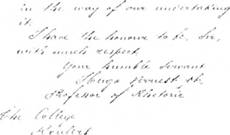 in the way of our undertaking
it.
I have the honour to be, Sir,
with much respect
Your humble servant
Professor of Rhetoric
The College